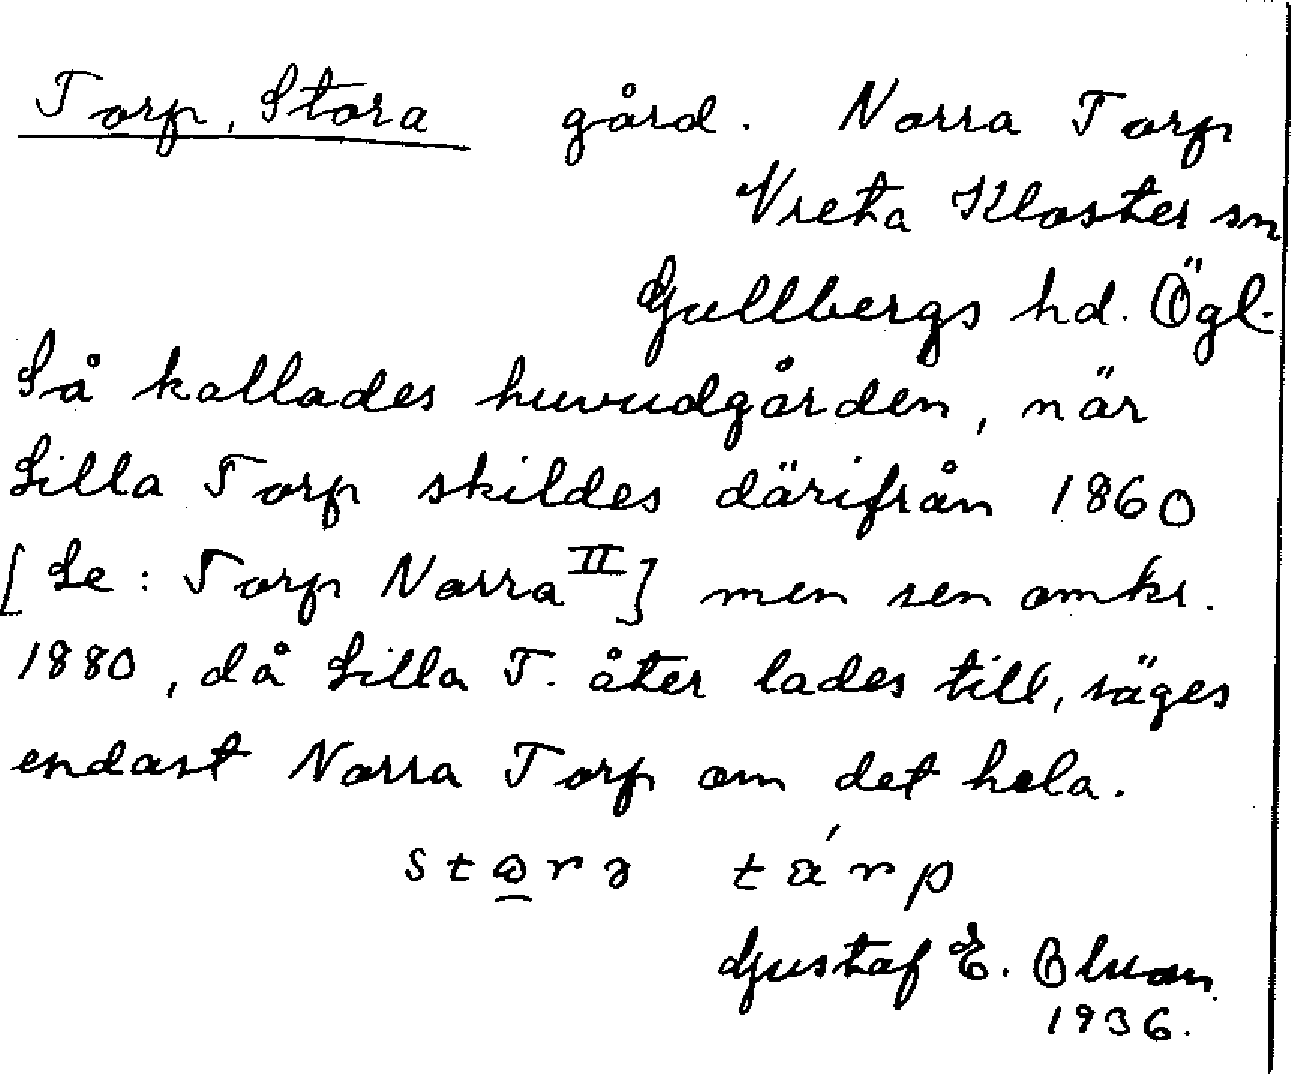 Torp, Stora gård. Norra Torp
Vreta Kloster sn
Gullbergs hd. Ögl.
Så kallades huvudgården, när
Lilla Torp skildes därifrån 1860
[Se: Torp Norra II] men sen omkr.
1880, då Lilla T. återlades till, säges
endast Norra Torp om det hela.
Gustaf E.
1936.